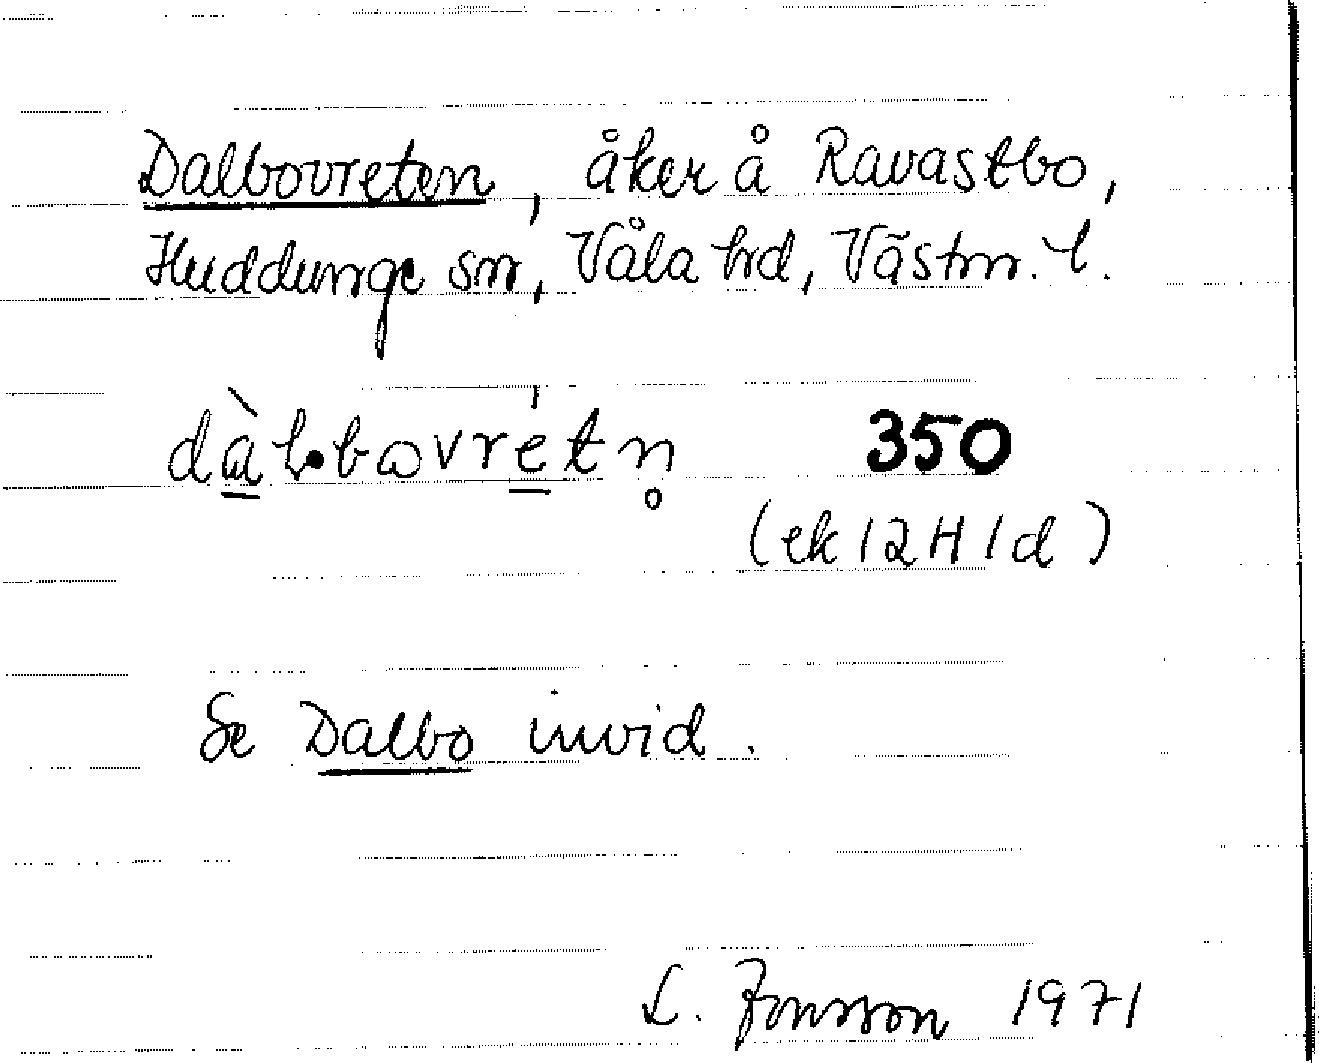 Dalbovreten, åker å Ravastbo,
Huddunge sn, Våla hd, Västm. l.
dàl•bωvre̍tn̥ 350
(ek 12 H 1 d)
Se Dalbo invid.
L. Jonsson 1971